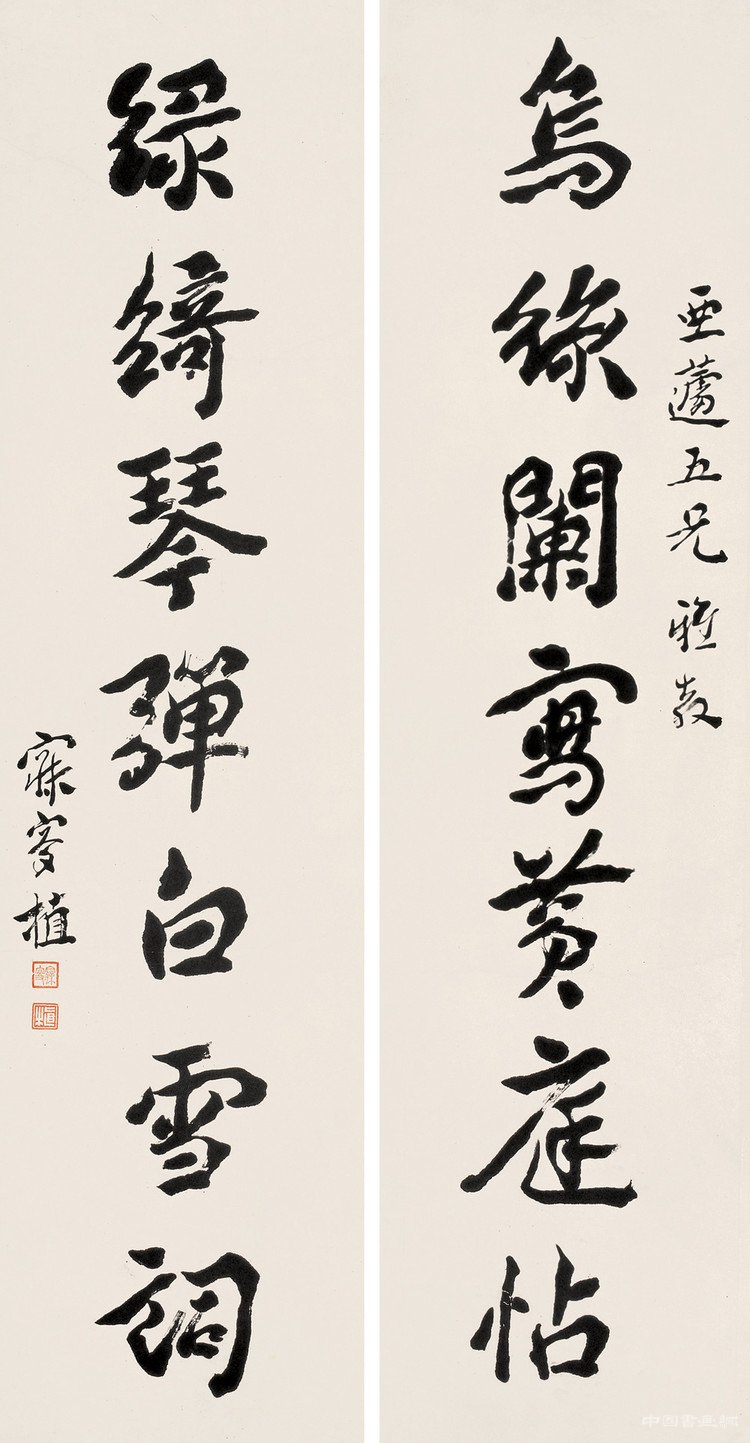 亞蘧五兄雅教
烏絲闌寫黃庭帖
綠綺琴彈白雪詞
寐叟植
中国書画網